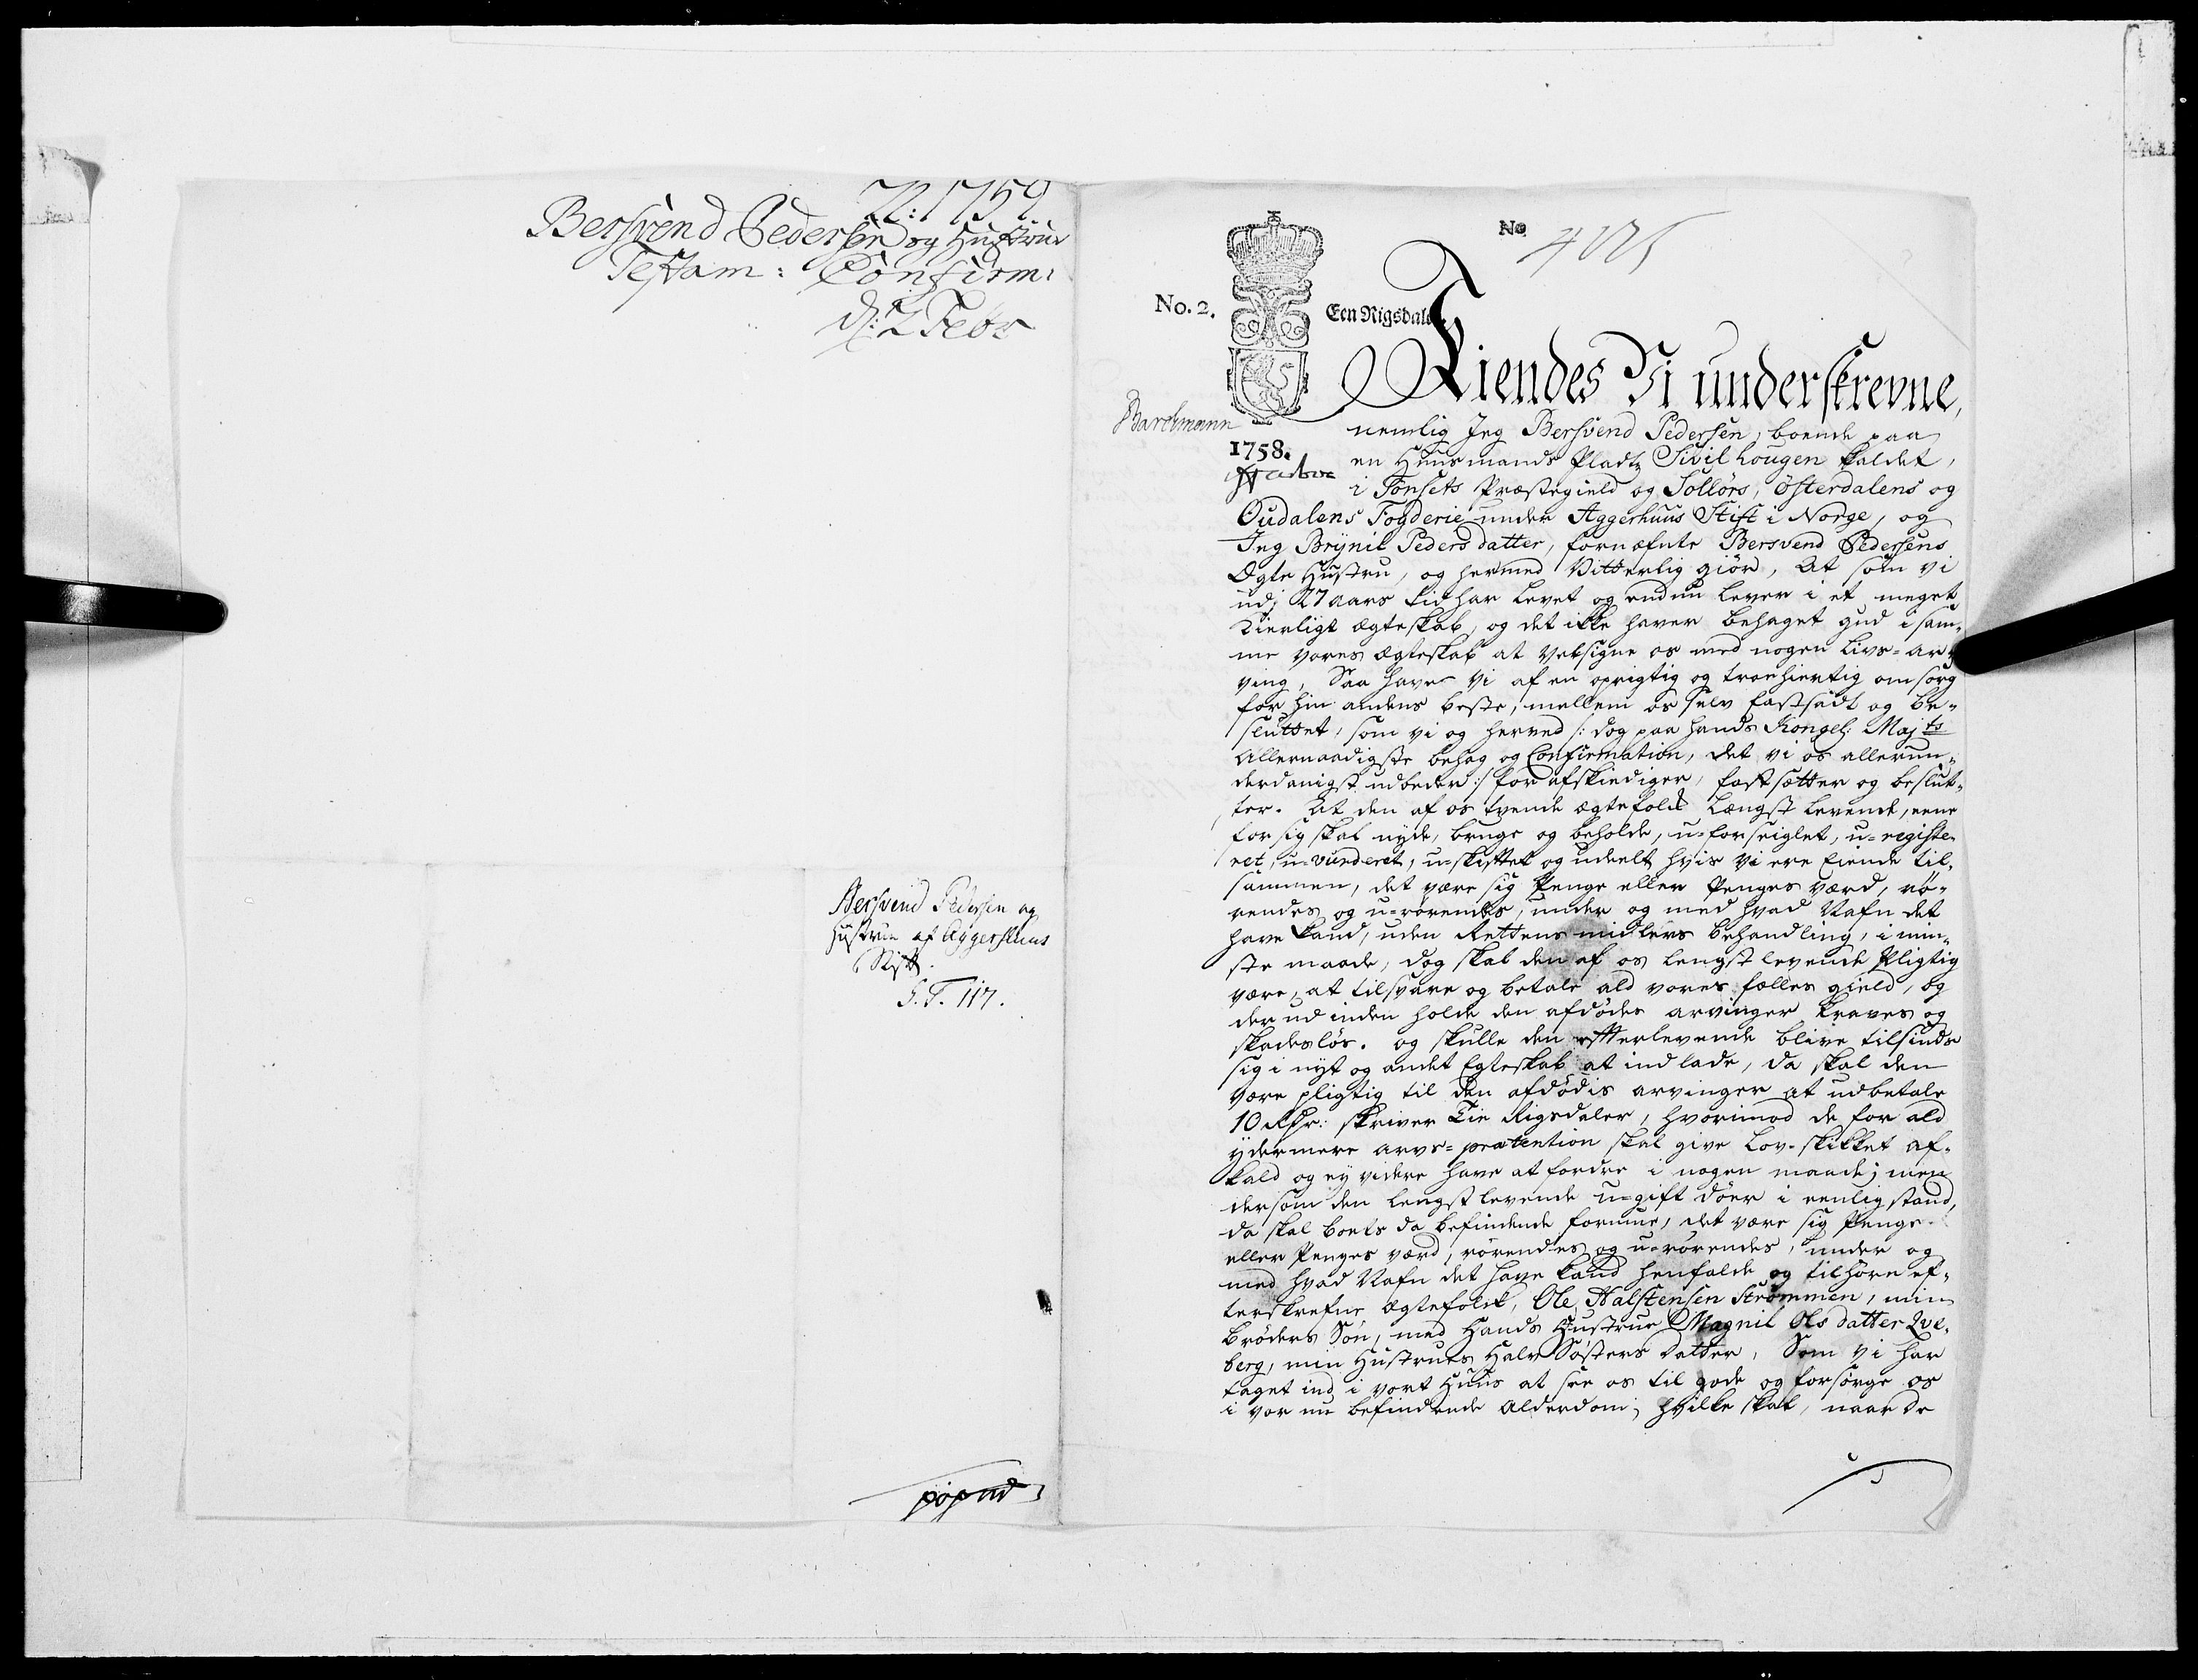 22: 1759
Bersvend Pedersen og Hustrue
Testam: Confirm:
d: 2 Febr
Bersvend Pedersen og
Hustrue af Aggershuus
Stift.
S. T. 117.
No
No. 2.
Een Rigsdaler
Kiendes Vi underskrevne,
Barchmann
nemlig Jeg Bersvend Pedersen, boende paa
1758.
en Huusmands Pladtz Sivilhougen kaldet,
i Tønsets Præstegield og Solløers, Østerdalens og
Oudalens Fogderie under Aggerhuus Stift i Norge, og
Jeg Brynil Peders datter, fornæfnte Bersvend Pedersens
Ægte Hustru, og hermed Vitterlig giør, At som vi
udj 27 aars tid har levet og endnu lever i et meget
Kierligt ægteskab, og det ikke haver behaget gud i sam-
me vores Ægteskab at velsigne os med nogen Livs-ar-
ving, Saa haver vi af en oprigtig og troehiertig omsorg
for hin andens beste, mellem os selv fastsadt og be-
sluttet, som vi og herved /: dog paa hands Kongel: Majts
Allernaadigste behag og Confirmation, det vi os allerun-
derdanigst udbeder :/ forafskiediger, fastsætter og beslut-
ter. At den af os tvende ægtefolk Længst levende, eene
for sig skal nyde, bruge og beholde, u-forseiglet, u-registe-
ret, u-vurderet, u-skiftet og udeelt hvis vi ere Eiende til-
sammen, det være sig Penge eller Penges værd, rø-
rendes og u-rørendes, under og med hvad Nafn det
have kand, uden Rettens midlers behandling, i min-
ste maade, dog skal den af os lengst levende Pligtig
være, at tilsvare og betale ald vores fælles gield, og
der ud inden holde den afdødes arvinger kraves og
skadesløs. og skulle den efterlevende blive tilsinds
sig i nyt og andet Egteskab at indlade, da skal den
være pligtig til den afdødis arvinger at udbetale
10 Rdr: skriver Tie Rigsdaler, hvorimod de for ald
ydermere arvs-prætention skal give Lov-skikket af-
kald og ey videre have at fordre i nogen maade; men
dersom den lengst levende u-gift døer i eenlig stand,
da skal boets da befindende formue, det være sig Penge
eller Penges værd, rørendes og u-rørendes, under og
med hvad Nafn det have kand henfalde og tilhøre ef-
terskrefne ægtefolk, Ole Halstensen Strømmen, min
Broders Søn, med Hands Hustrue Magnil Ols datter Qve-
berg, min Hustrues Halv Søsters datter, Som vi har
taget ind i vort Huus at see os til gode og forsørge os
i vor nu befindende Alderdom; hvilke skal, naar de